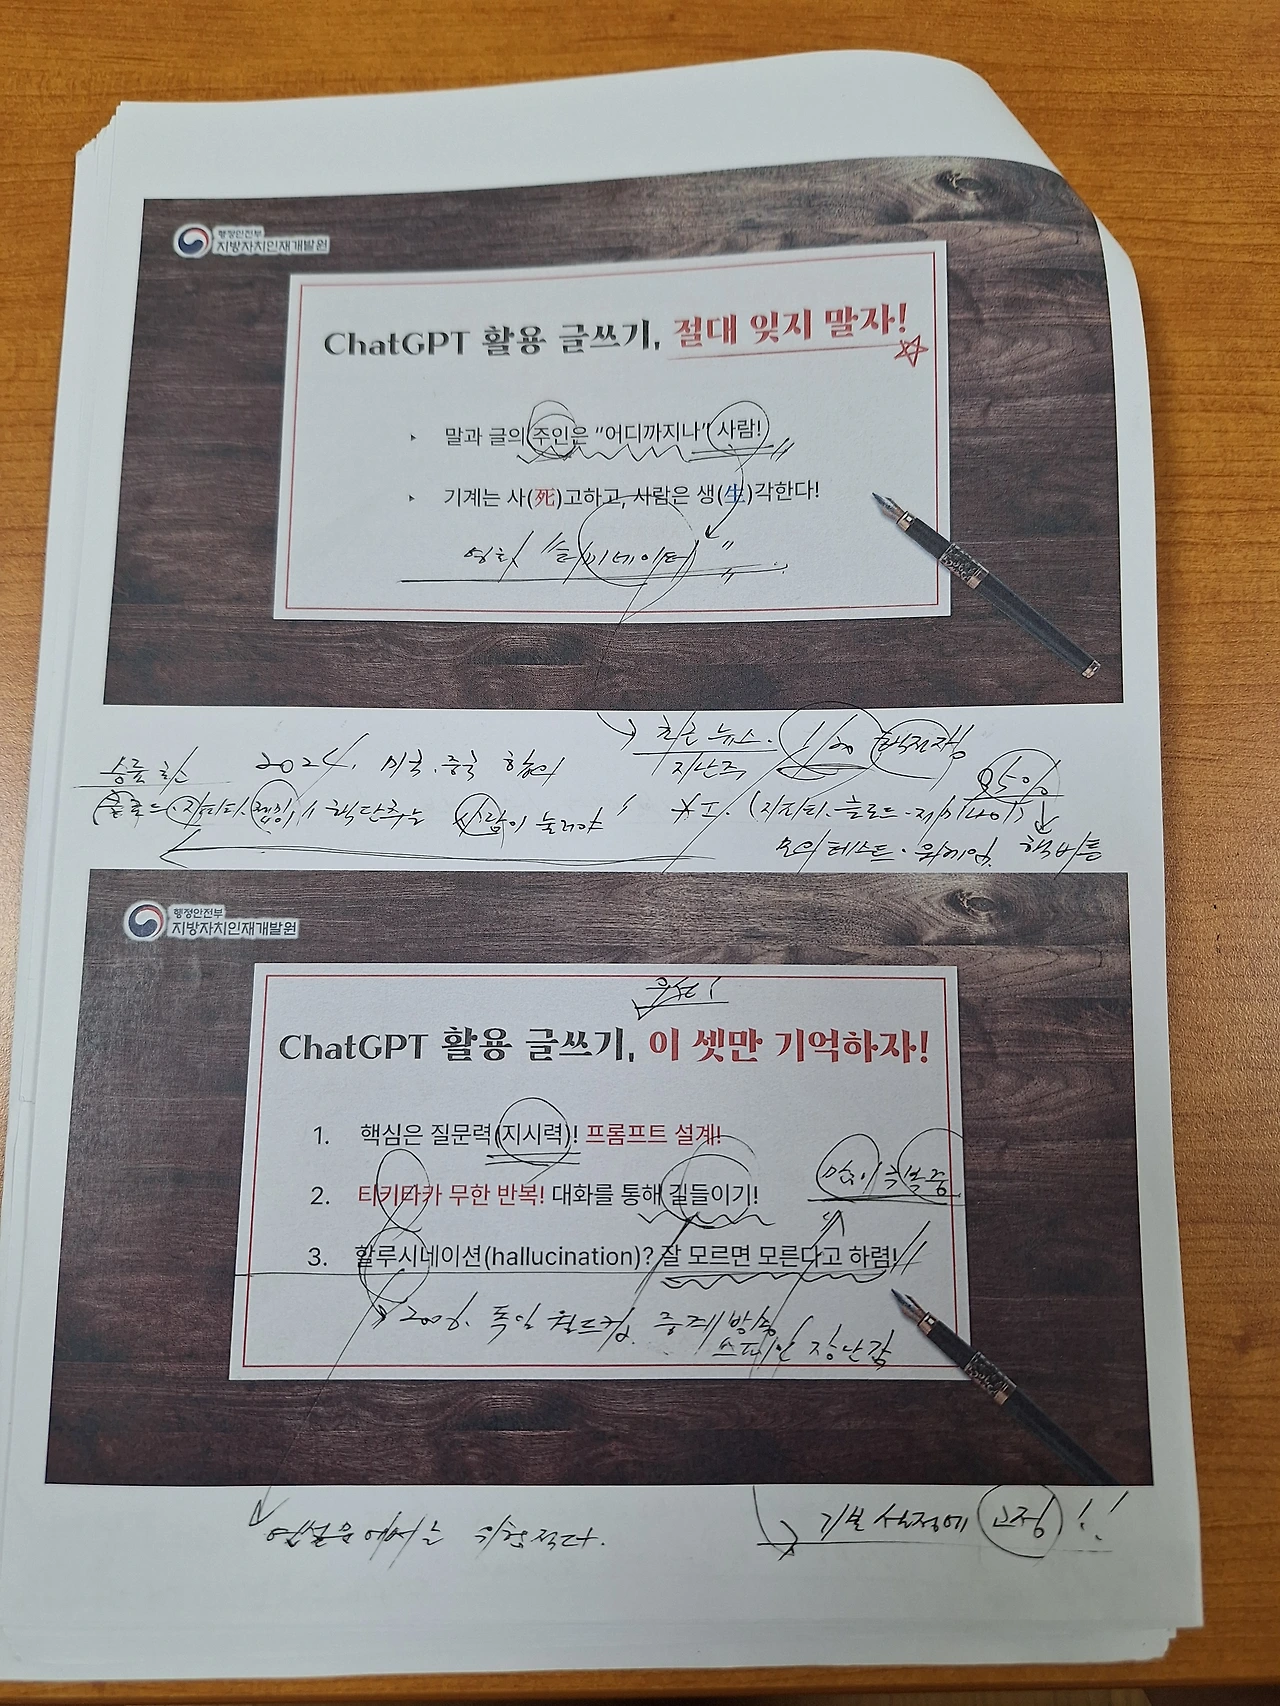 행정안전부
지방자치인재개발원
ChatGPT 활용 글쓰기, 절대 잊지 말자!
▸ 말과 글의 주인은 “어디까지나” 사람!
▸ 기계는 사(死)고하고, 사람은 생(生)각한다!
영화 "터미네이터"
최근 뉴스.
지난주
핵전쟁
95%
2024. 미국.중국 합의
핵단추는 사람이 눌러야"
AI. (지피티.클로드.제미나이)
모의테스트.워게임. 핵버튼
행정안전부
지방자치인재개발원
ChatGPT 활용 글쓰기, 이 셋만 기억하자!
1. 핵심은 질문력(지시력)! 프롬프트 설계!
2. 티키타카 무한 반복! 대화를 통해 길들이기!
3. 할루시네이션(hallucination)? 잘 모르면 모른다고 하렴!
2006. 독일 월드컵. 중계방송
스페인 장난감
에서는 위험적다.
기본설정에 고정!!